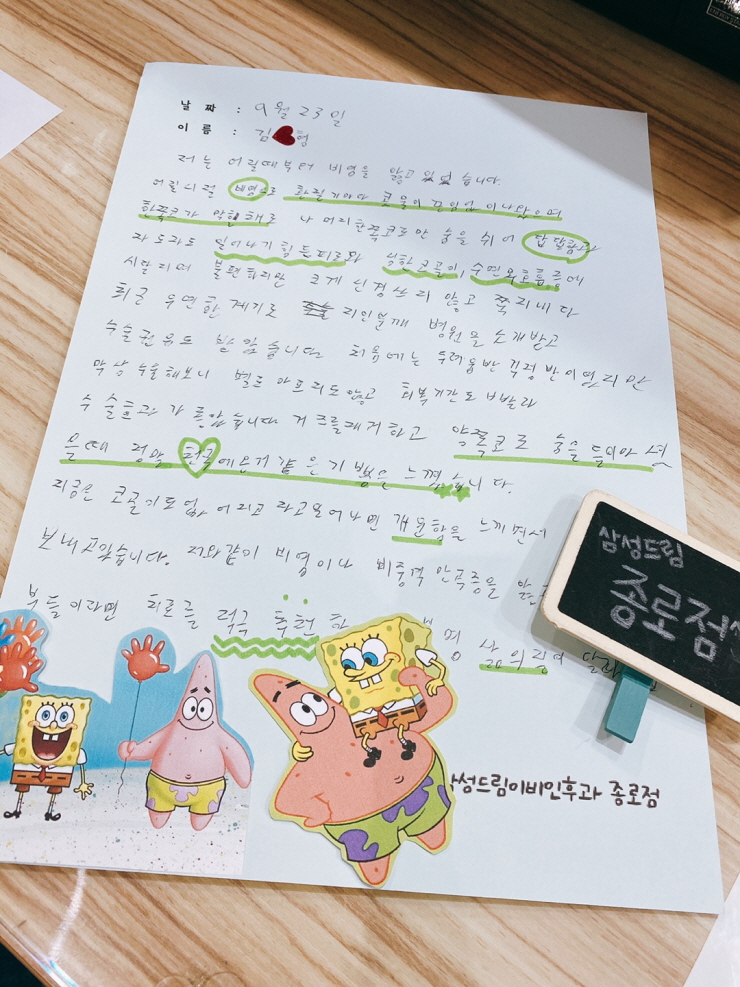 날 짜 : 9월 23일
이 름 : 김 영
저는 어릴때부터 비염을 앓고 있었습니다.
어릴시절 비염으로 환절기마다 콧물이 끊임없이나왔으며
한쪽코가 막힌채로 나머지한쪽코로만 숨을 쉬어 답답함과
자도자도 일어나기 힘든피로와 심한코골이, 수면무호흡증에
시달리며 불편하지만 크게 신경쓰지 않고 쭉지내다
최근 우연한 계기로 지인분께 병원을 소개받고
수술권유도 받았습니다 처음에는 두려움반 걱정반이였지만
막상 수술해보니 별로 아프지도않고 회복기간도 빠빨라
수술효과가 좋았습니다 거즈를제거하고 양쪽코로 숨을 들이마셨
을때 정말 천국에온거 같은기쁨을 느꼈습니다.
지금은 코골이도 없어지고 자고일어나면 개운함을 느끼면서
보내고있습니다. 저와같이 비염이나 비중격 만곡증을 앓
분들이라면 치료를 적극 추천 삶의질이
삼성드림
종로점
성드림이비인후과 종로점